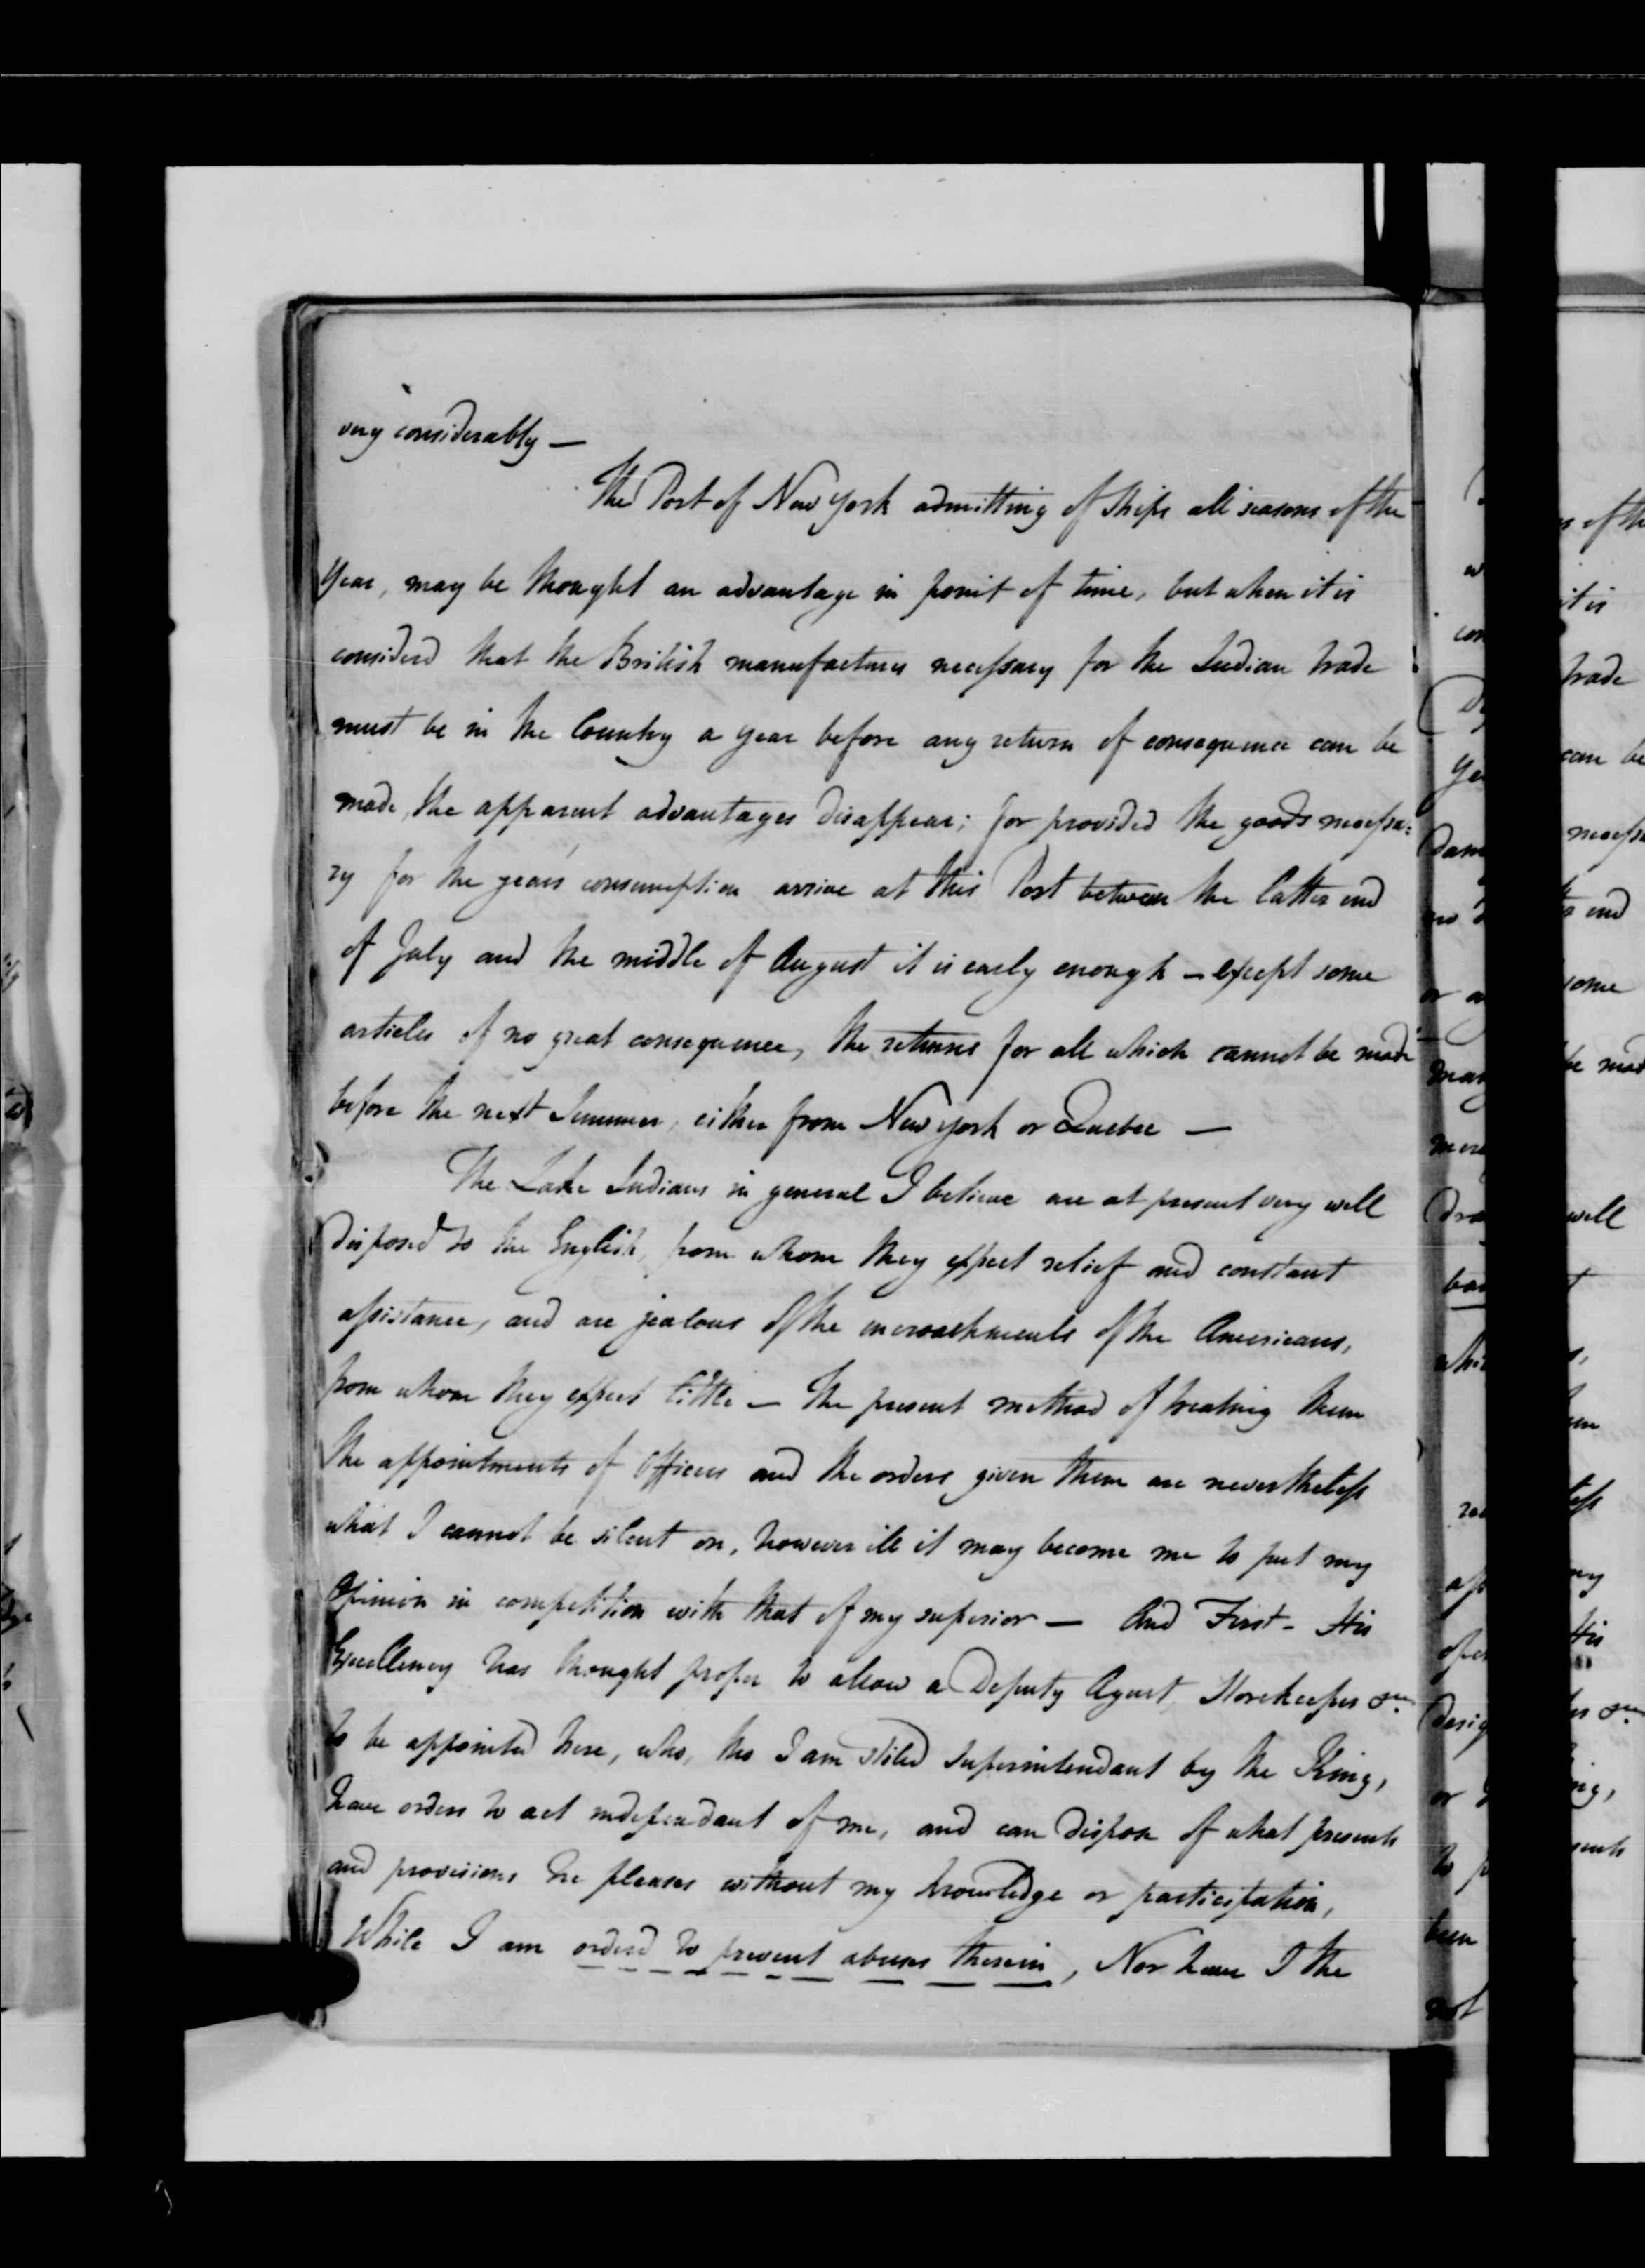 very considerably —
The Port of New York admitting of Ships all seasons of the
Year, may be thought an advantage in point of time, but when it is
considerd that the British manufactures necessary for the Indian trade
must be in the Country a year before any return of consequence can be
made, the apparent advantages disappear; for provided the goods necessa=
ry for the year's consumption arrive at this Post between the latter end
of July and the middle of August it is early enough — except some
articles of no great consequence, the returns for all which cannot be made
before the next Summer, either from New York or Quebec —
The Lake Indians in general I believe are at present very well
disposed to the English, from whom they expect relief and constant
assistance, and are jealous of the encroachments of the Americans,
from whom they expect little — The present method of treating them
the appointments of Officers and the orders given them are nevertheless
what I cannot be silent on, however ill it may become me to put my
Opinion in competition with that of my superior — And First - His
Excellency has thought proper to allow a Deputy Agent, Storekeeper &ca
to be appointed here, who, tho I am stiled Superintendant by the King,
have orders to act independant of me, and can dispose of what presents
and provisions he pleases without my knowledge or participation,
While I am orderd to prevent abuses therein, Nor have I the